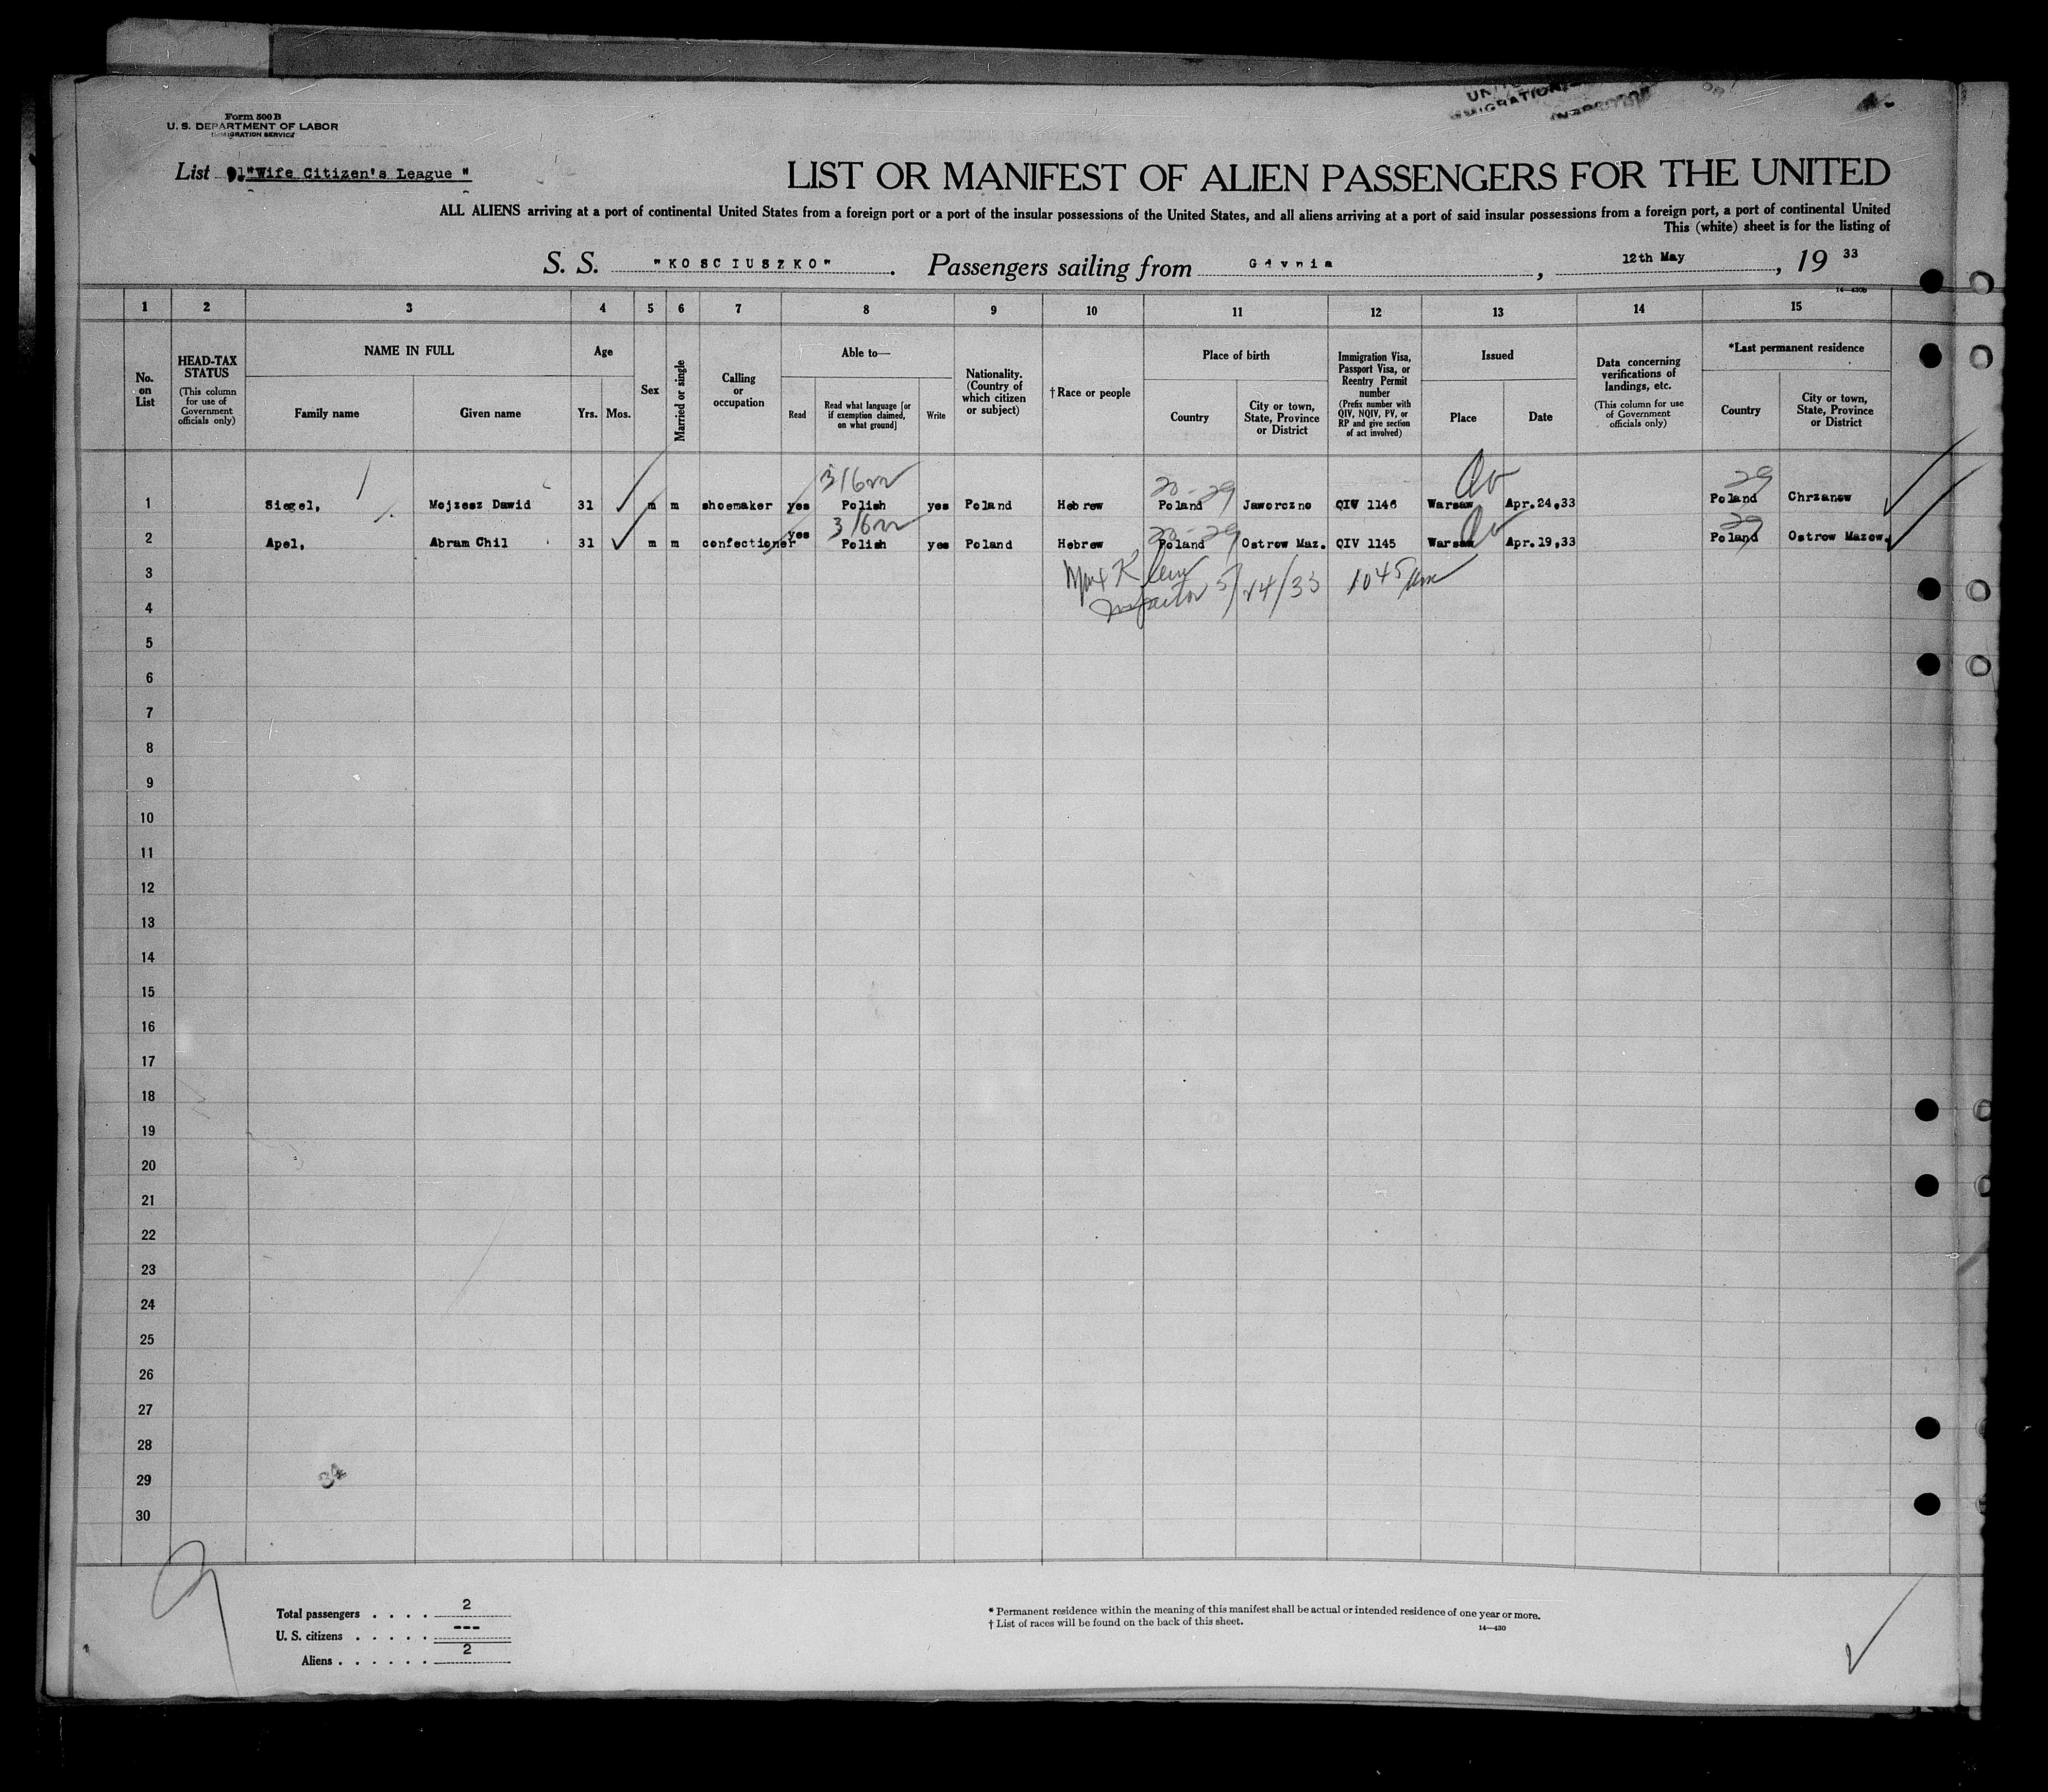 Form 500 B
U. S. DEPARTMENT OF LABOR
IMMIGRATION SERVICE
List "Wife Citizen's League "
LIST OR MANIFEST OF ALIEN PASSENGERS FOR THE UNITED
ALL ALIENS arriving at a port of continental United States from a foreign port or a port of the insular possessions of the United States, and all aliens arriving at a port of said insular possessions from a foreign port, a port of continental United
This (white) sheet is for the listing of
S. S. "KOSCIUSZKO" . Passengers sailing from Gdynia , 12th May , 19 33
14—430b
1 2 3 4 5 6 7 8 9 10 11 12 13 14 15
No. on List
HEAD-TAX STATUS
(This column for use of Government officials only)
NAME IN FULL
Family name Given name
Age
Yrs. Mos.
Sex
Married or single
Calling or occupation
Able to—
Read
Read what language [or if exemption claimed, on what ground]
Write
Nationality. (Country of which citizen or subject)
†Race or people
Place of birth
Country
City or town, State, Province or District
Immigration Visa, Passport Visa, or Reentry Permit number
(Prefix number with QIV, NQIV, PV, or RP and give section of act involved)
Issued
Place Date
Data concerning verifications of landings, etc.
(This column for use of Government officials only)
*Last permanent residence
Country
City or town, State, Province or District
1 Siegel, Mojzesz Dawid 31 m m shoemaker yes Polish yes Poland Hebrew Poland Jaworzno QIV 1146 Warsaw Apr.24,33 Poland Chrzanow
2 Apel, Abram Chil 31 m m confectioner yes Polish yes Poland Hebrew Poland Ostrow Maz. QIV 1145 Warsaw Apr.19,33 Poland Ostrow Mazow.
3 Max Klein
4 Inspector 5/24/33 1045 am
5
6
7
8
9
10
11
12
13
14
15
16
17
18
19
20
21
22
23
24
25
26
27
28
29
30
34
Total passengers . . . . 2
U. S. citizens . . . . . ---
Aliens . . . . . . 2
* Permanent residence within the meaning of this manifest shall be actual or intended residence of one year or more.
† List of races will be found on the back of this sheet.
14—430